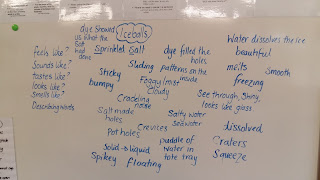 dye showed
us what the
salt had
done
Iceballs
Sprinkled Salt
feels like?
Sounds like?
tastes like?
looks like?
Smells like?
Describing words
Sticky
bumpy
Sliding
patterns on the
inside
Foggy/mist
Cloudy
Crackling
noise
Salt made
holes
Pot holes
Crevices
Solid → liquid
Spikey
Floating
dye filled the
holes
Salty water
Seawater
puddle of
water in
tote tray
Water dissolves the ice
beautiful
melts
Smooth
freezing
See through, Shiny,
looks like glass
dissolved
Craters
Squeeze